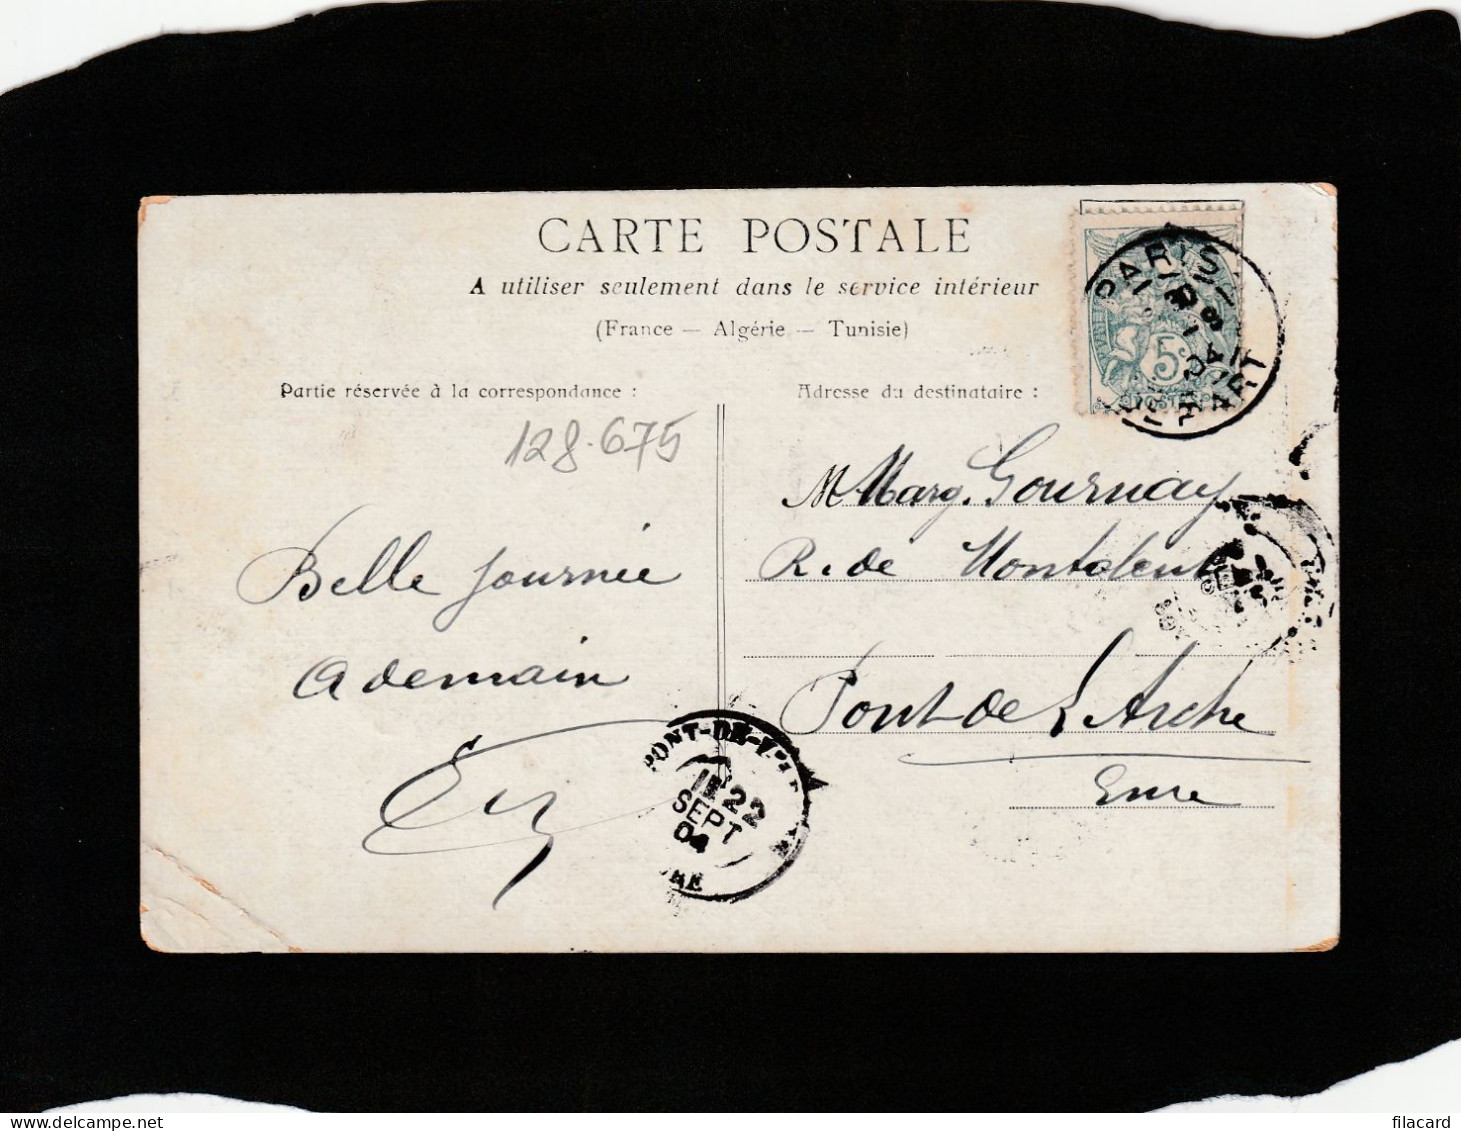 CARTE POSTALE
A utiliser seulement dans le service intérieur
(France — Algérie — Tunisie)
Partie réservée à la correspondance :
Adresse du destinataire :
128-675
Belle journée
A demain
M Marg. Gournay
R. de Montalent
Pont-de L'Arche
Eure
PARIS
5
POSTES
DÉPART
PONT-DE-L'
22
SEPT
04
URE
filacard.